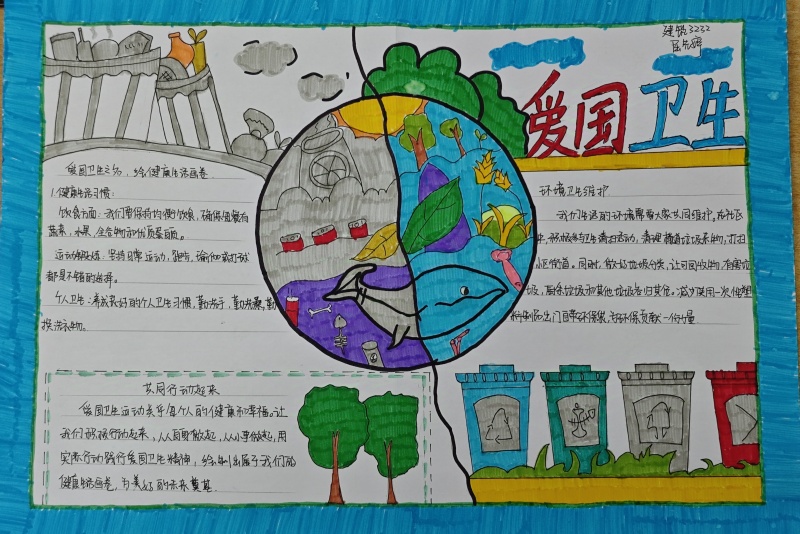 建筑3232
爱国卫生
爱国卫生之分，绘健康生活画卷
1.健康生活习惯：
饮食方面：我们要保持均衡饮食，确保每餐有
蔬菜，水果，全谷物和优质蛋白。
运动锻炼：坚持日常运动，跑步，瑜伽或打球
都是不错的选择。
个人卫生：养成良好的个人卫生习惯，勤洗手，勤洗澡，勤
换洗衣物。
环境卫生维护
我们生活的环境需要大家共同维护。在社区
里，积极参与卫生清扫活动，清理楼道垃圾杂物，打扫
小区街道。同时，做好垃圾分类，让可回收物，有害垃
圾，厨余垃圾和其他垃圾各归其位。减少使用一次性塑
料制品出门自带环保袋，为环保贡献一份力量
共同行动起来
爱国卫生运动关乎每个人的健康和幸福。让
我们积极行动起来，从自身做起，从小事做起，用
实际行动践行爱国卫生精神，绘制出属于我们的
健康生活画卷，为美好的未来奠基